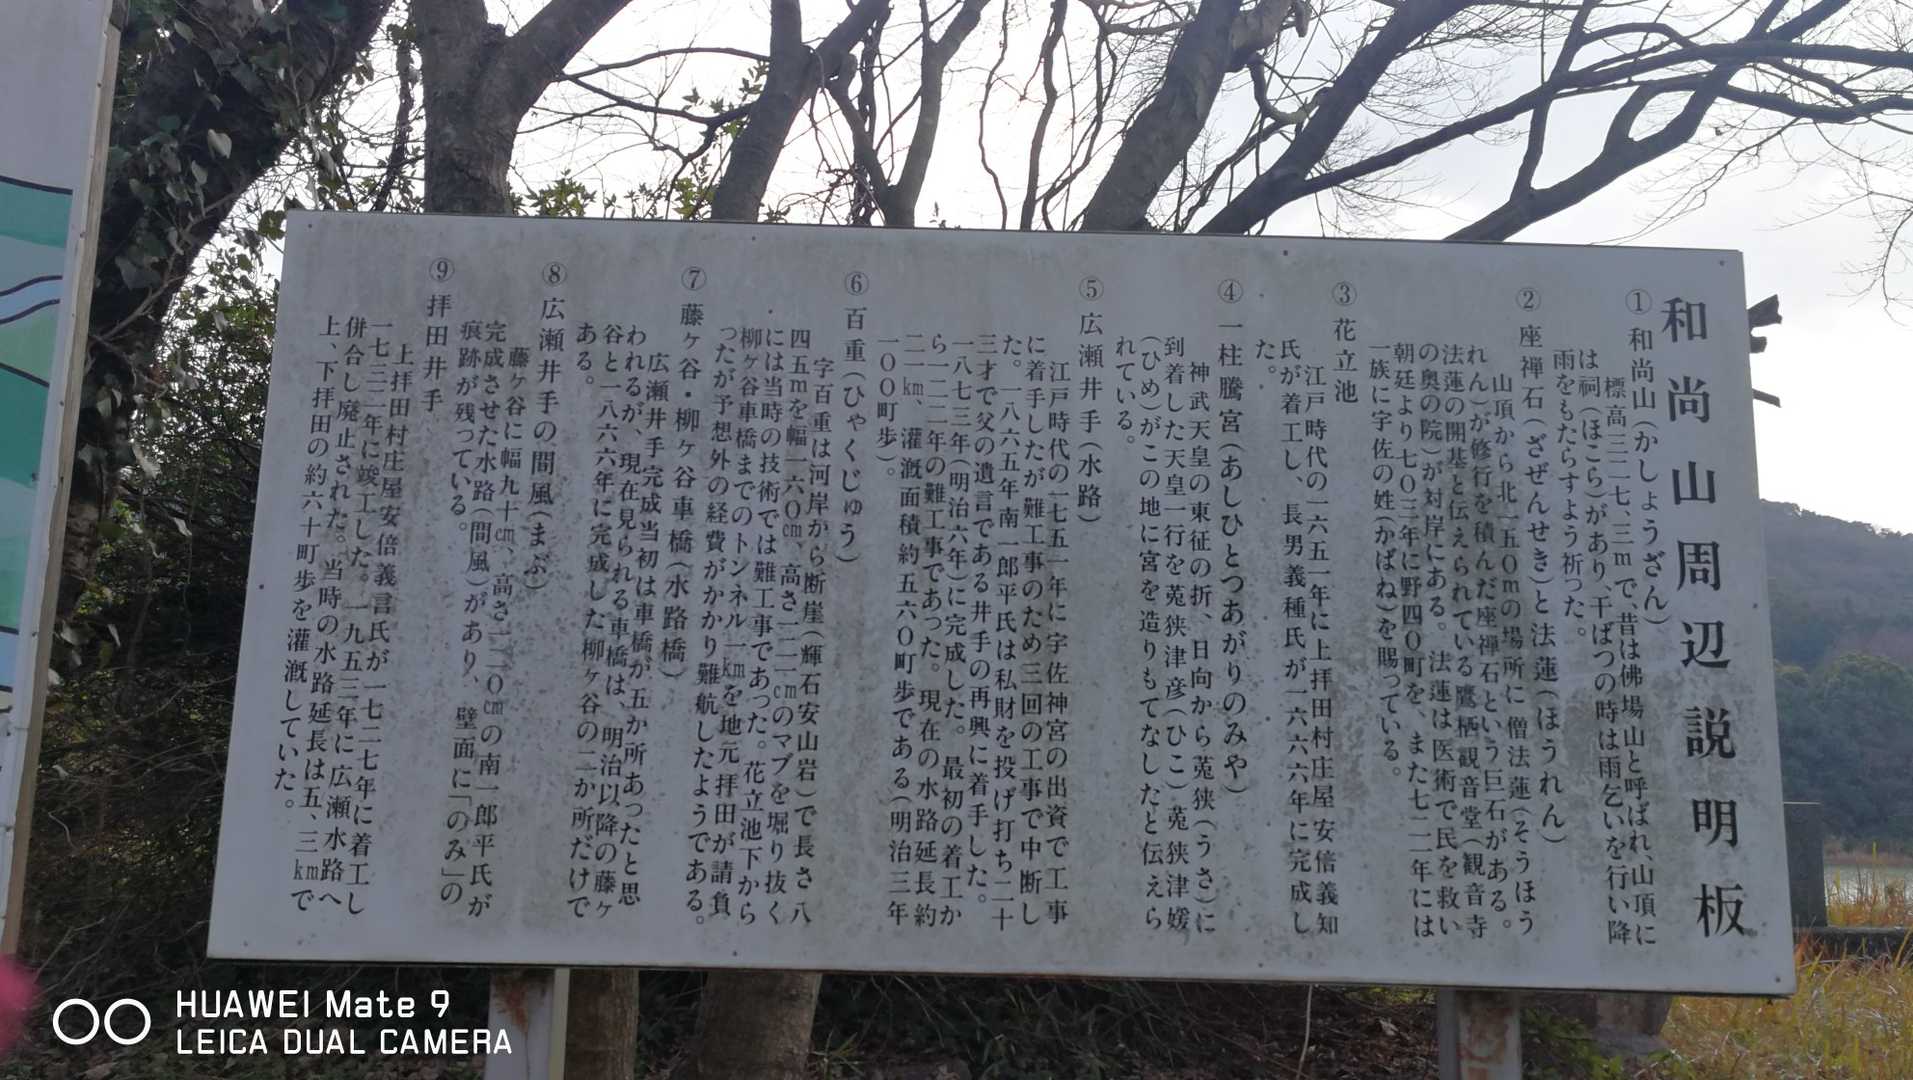 和尚山周辺説明板
①和尚山（かしょうざん）
標高三二七、三ｍで、昔は佛場山と呼ばれ、山頂に
は祠（ほこら）があり、干ばつの時は雨乞いを行い降
雨をもたらすよう祈った。
②座禅石（ざぜんせき）と法蓮（ほうれん）
山頂から北一五〇ｍの場所に僧法蓮（そうほう
れん）が修行を積んだ座禅石という巨石がある。
法蓮の開基と伝えられている鷹栖観音堂（観音寺
の奥の院）が対岸にある。法蓮は医術で民を救い
朝廷より七〇三年に野四〇町を、また七二一年には
一族に宇佐の姓（かばね）を賜っている。
③花立池
江戸時代の一六五一年に上拝田村庄屋安倍義知
氏が着工し、長男義種氏が一六六六年に完成し
た。
④一柱騰宮（あしひとつあがりのみや）
神武天皇の東征の折、日向から菟狭（うさ）に
到着した天皇一行を菟狭津彦（ひこ）菟狭津媛
（ひめ）がこの地に宮を造りもてなしたと伝えら
れている。
⑤広瀬井手（水路）
江戸時代の一七五一年に宇佐神宮の出資で工事
に着手したが難工事のため三回の工事で中断し
た。一八六五年南一郎平氏は私財を投げ打ち二十
三才で父の遺言である井手の再興に着手した。
一八七三年（明治六年）に完成した。最初の着工か
ら一二二年の難工事であった。現在の水路延長約
二二㎞、灌漑面積約五六〇町歩である（明治三年
一〇〇町歩）。
⑥百重（ひゃくじゅう）
字百重は河岸から断崖（輝石安山岩）で長さ八
四五ｍを幅一六〇㎝、高さ二二二㎝のマブを堀り抜く
には当時の技術では難工事であった。花立池下から
柳ヶ谷車橋までのトンネル一㎞を地元拝田が請負
ったが予想外の経費がかかり難航したようである。
⑦藤ヶ谷・柳ヶ谷車橋（水路橋）
広瀬井手完成当初は車橋が五か所あったと思
われるが、現在見られる車橋は、明治以降の藤ヶ
谷と一八六六年に完成した柳ヶ谷の二か所だけで
ある。
⑧広瀬井手の間風（まぶ）
藤ヶ谷に幅九十㎝、高さ一二〇㎝の南一郎平氏が
完成させた水路（間風）があり、壁面に「のみ」の
痕跡が残っている。
⑨拝田井手
上拝田村庄屋安倍義言氏が一七二七年に着工し
一七三二年に竣工した。一九五三年に広瀬水路へ
併合し廃止された。当時の水路延長は五、三㎞で
上、下拝田の約六十町歩を灌漑していた。
HUAWEI Mate 9
LEICA DUAL CAMERA